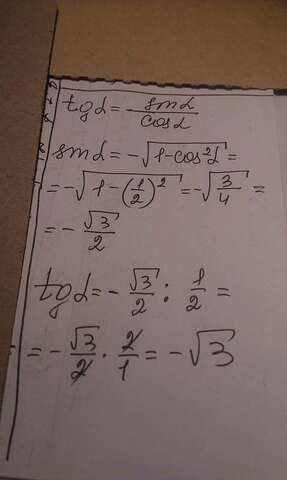 tgα = sinα/cosα
sinα = -√(1-cos²α) =
= -√(1-(1/2)²) = -√(3/4) =
= - √3/2
tgα = - √3/2 : 1/2 =
= - √3/2 · 2/1 = - √3